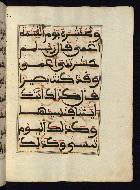 ونحشره يوم القيمة
أعمى قال رب لم
حشرتني أعمى
وقد كنت بصيرا
قال كذلك أتتك
ءايتنا فنسيتها
وكذلك اليوم
تنسى وكذلك